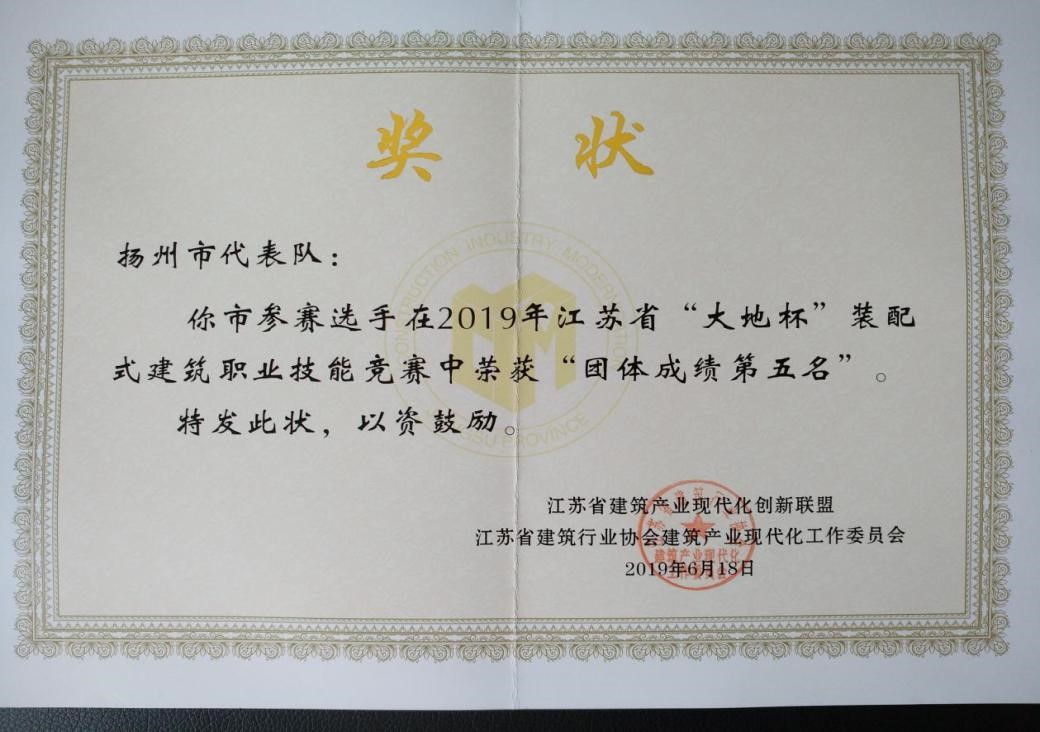 奖 状
扬州市代表队：
CONSTRUCTION INDUSTRY MODERN
你市参赛选手在2019年江苏省“大地杯”装配
式建筑职业技能竞赛中荣获“团体成绩第五名”。
特发此状，以资鼓励。
PROVINCE
江苏省建筑产业现代化创新联盟
江苏省建筑行业协会建筑产业现代化工作委员会
2019年6月18日
建筑产业现代化
工作委员会